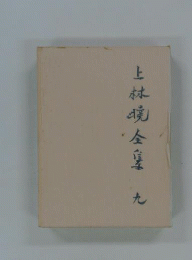 上林曉全集 九